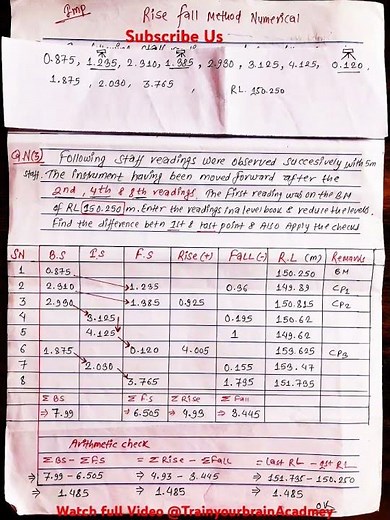 Imp
Rise fall Method Numerical
Subscribe Us
0.875, 1.235, 2.310, 1.385, 2.930, 3.125, 4.125, 0.120,
1.875, 2.030, 3.765,
RL 150.250
Q.N(3) Following staff readings were observed succesively with 5m
staff. The instrument having been moved forward after the
2nd, 4th & 8th readings. The first reading was on the BM
of RL (150.250)m. Enter the readings in a level book & reduce the levels.
Find the difference betn 1st & last point & Also Apply the checks
SN B.S I.S F.S Rise(+) FALL(-) R.L (m) Remarks
1 0.875 150.250 BM
2 2.310 1.235 0.36 149.89 CP1
3 2.930 1.385 0.925 150.815 CP2
4 3.125 0.195 150.62
5 4.125 1 149.62
6 1.875 0.120 4.005 153.625 CP3
7 2.030 0.155 153.47
8 3.765 1.735 151.735
Σ BS Σ F.S Σ Rise Σ Fall
⇒ 7.99 ⇒ 6.505 ⇒ 4.93 ⇒ 3.445
Arithmetic check
Σ BS - Σ F.S = Σ Rise - Σ Fall = Last RL - 1st RL
⇒ 7.99 - 6.505 ⇒ 4.93 - 3.445 ⇒ 151.735 - 150.250
⇒ 1.485 ⇒ 1.485 ⇒ 1.485
OK
Watch full Video @TrainyourbrainAcadmey